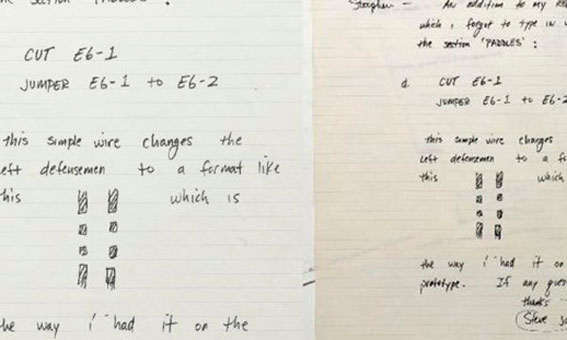 the section 'PADDLES' :
CUT E6-1
JUMPER E6-1 to E6-2
this simple wire changes the
left defensemen to a format like
this which is
the way i had it on the
Stephen — An addition to my
which i forgot to type in
the section 'PADDLES' :
d. CUT E6-1
JUMPER E6-1 to E6-2
this simple wire changes
left defensemen to a
this which
the way i had it on
prototype. If any
thanks